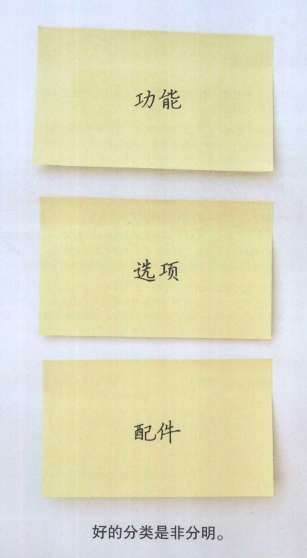 功能
选项
配件
好的分类是非分明。